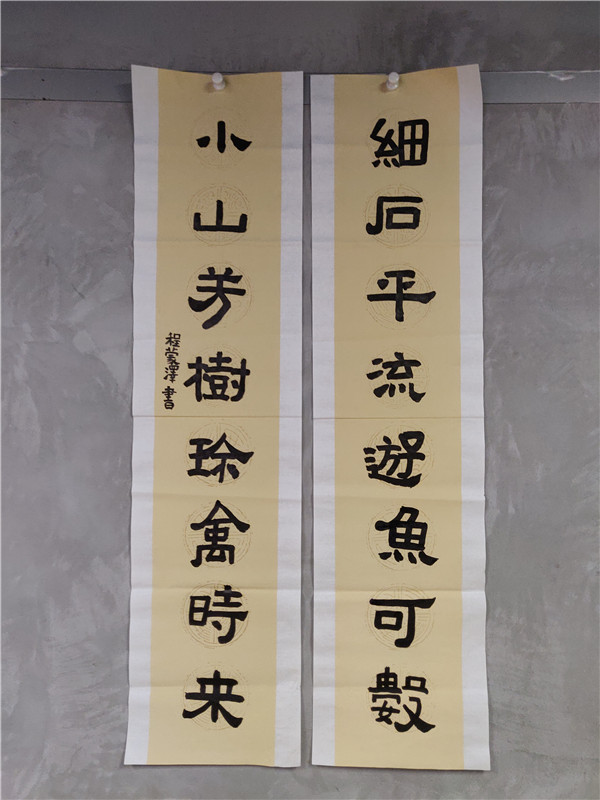 細石平流遊魚可數
小山芳樹珎禽時来
程蒙澤書